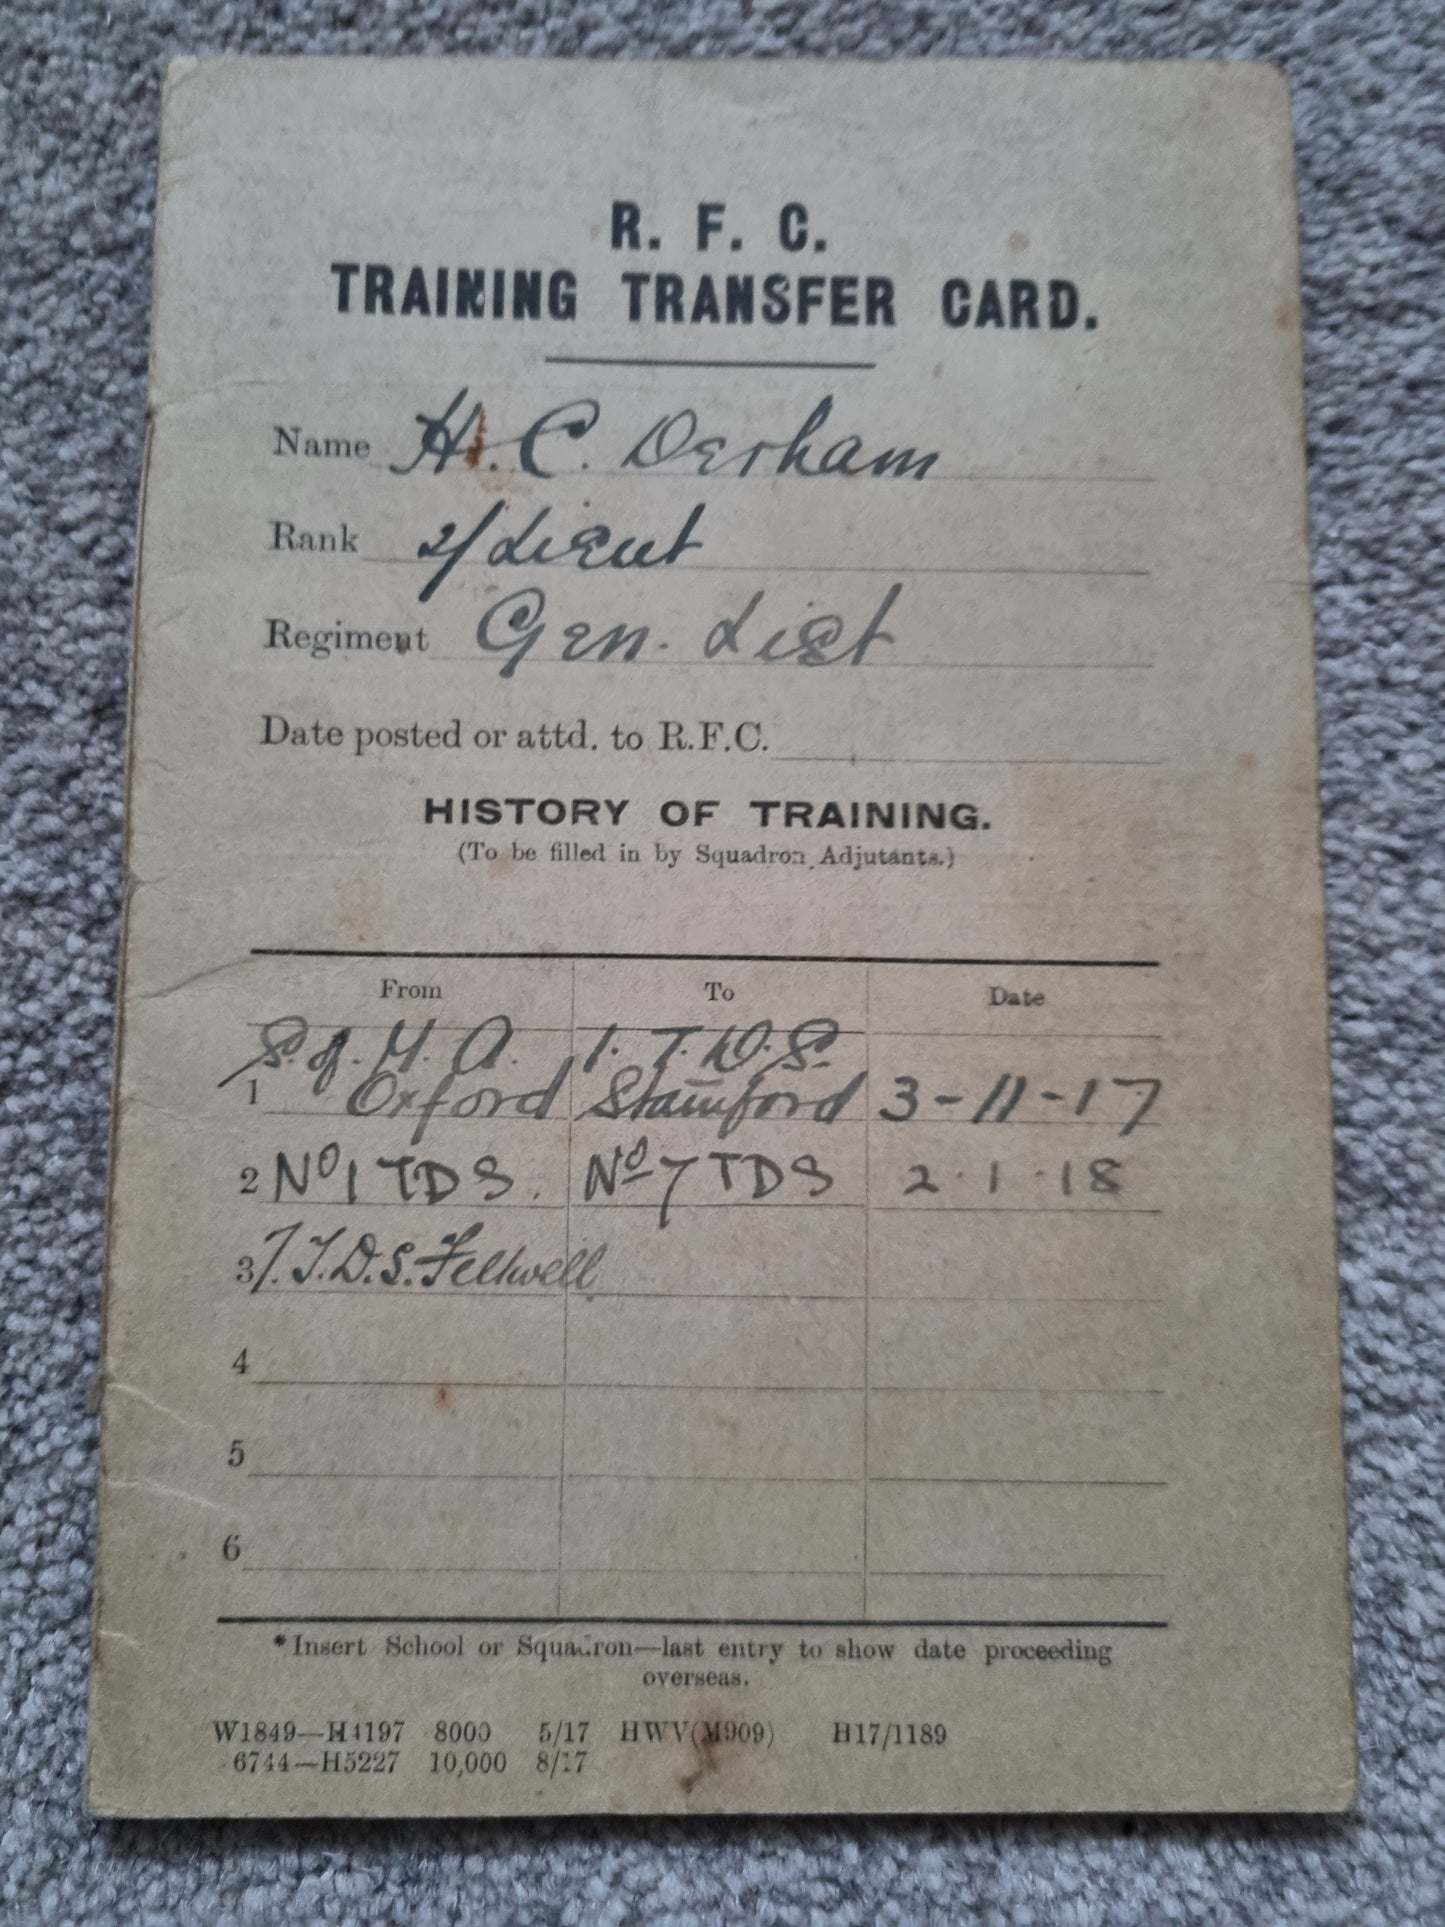 R. F. C.
TRAINING TRANSFER CARD.
Name H. C. Derham
Rank 2/Lieut
Regiment Gen. List
Date posted or attd. to R.F.C.
HISTORY OF TRAINING.
(To be filled in by Squadron Adjutants.)
From To Date
S. of. M. A. 1. T. D. S.
1 Oxford Stamford 3-11-17
2 No 1 TDS. No 7 TDS 2.1.18
3 7. T.D.S. Feltwell
4
5
6
*Insert School or Squadron—last entry to show date proceeding
overseas.
W1849—H4197 8000 5/17 HWV(M909) H17/1189
6744—H5227 10,000 8/17